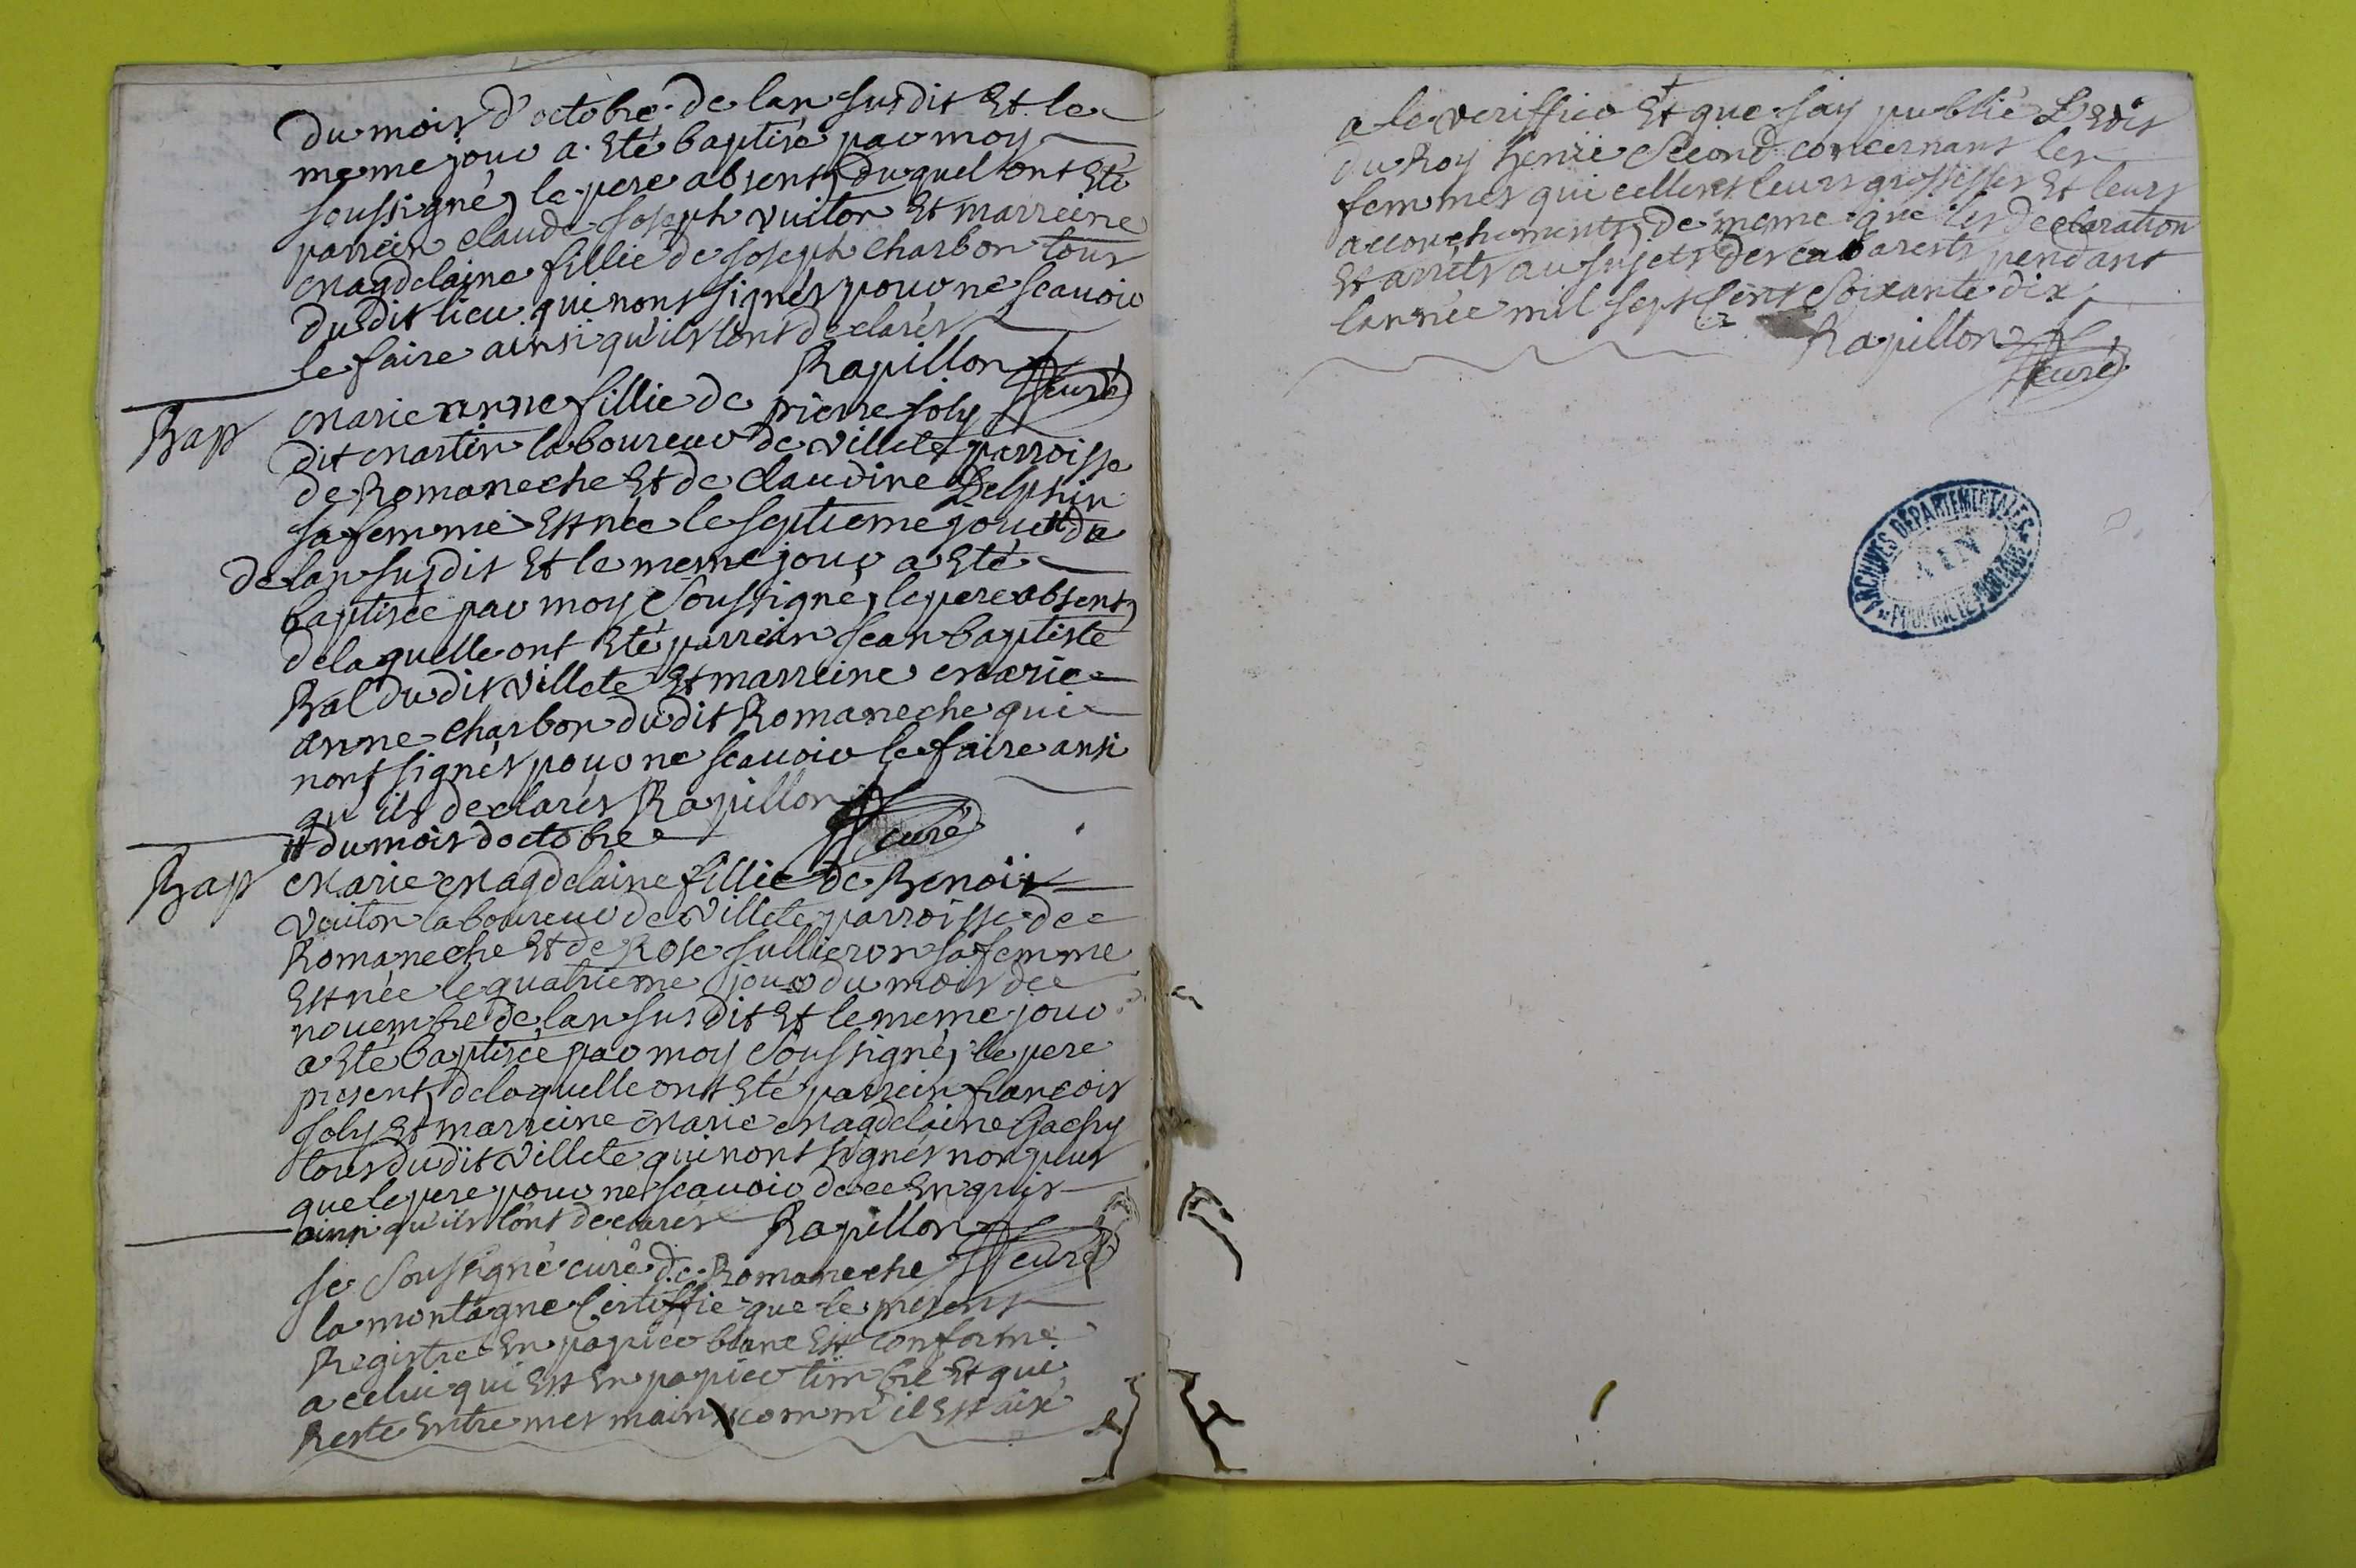 du mois d'octobre de lan susdit Et le
meme jour a Eté baptisé par moy
soussigné, le pere absent, duquel ont Eté
parrein claude joseph vuiton Et marreine
Magdelaine fillie de joseph charbon tous
dudit lieu qui nont signés pour ne scauoir
le faire ainsi qu'ils lont declarés
Rapillon curé
Bap
Marie anne fillie de pierre joly
dit Martin laboureur de Villete parroisse
de Romaneche Et de Claudine Delphin
sa femme Est née le septieme jour # de
de lan susdit Et le meme jour a Eté
baptisée par moy Soussigné, le pere absent,
delaquelle ont Eté parrein jean baptiste
Bal dudit Villete Et marreine Marie
anne charbon dudit Romaneche qui
nont signés pour ne scauoir le faire ansi
qu'ils declarés Rapillon curé
# du mois doctobre
Bap
Marie Magdelaine fillie de Benoit
Vuiton laboureur de Villete parroisse de
Romaneche Et de Rose jullieron sa femme
Est née le quatrieme jour du mois de
nouembre de lan susdit Et le meme jour
a Eté baptisée par moy Soussigné, le pere
present, delaquelle ont Eté parrein francois
joly Et marreine Marie Magdelaine Gachy
tous dudit Villete qui nont signés non plus
que le pere pour ne scauoir de ce Enquis
ainsi qu'ils lont declarés Rapillon curé
je Soussigné curé de Romaneche
la montagne Certiffie que le present
Registre En papier blanc Est conforme
a celui qui Est En papier timbré Et qui
Reste Entre mes mains comm'il Est aisé
a le veriffier Et que jay publié L'Edit
du Roy henrie Second concernant les
femmes qui cellent leurs grossesses Et leurs
accouchements, de meme que les declaration
Et arrets au sujets des cabarests pendant
lannée mil sept Cent Soixante dix
Rapillon curé
ARCHIVES DÉPARTEMENTALES
AIN
PROPRIÉTÉ PUBLIQUE